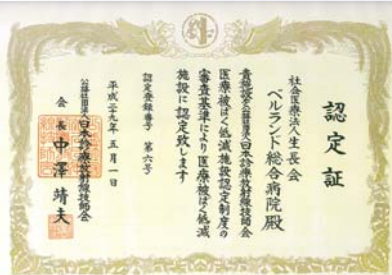 認定証
社会医療法人生長会
ベルランド総合病院殿
貴施設を公益社団法人日本診療放射線技師会
医療被ばく低減施設認定制度の
審査基準により医療被ばく低減
施設に認定致します
認定登録番号 第六号
平成二十九年五月一日
公益社団法人日本診療放射線技師会
会長 中澤靖夫